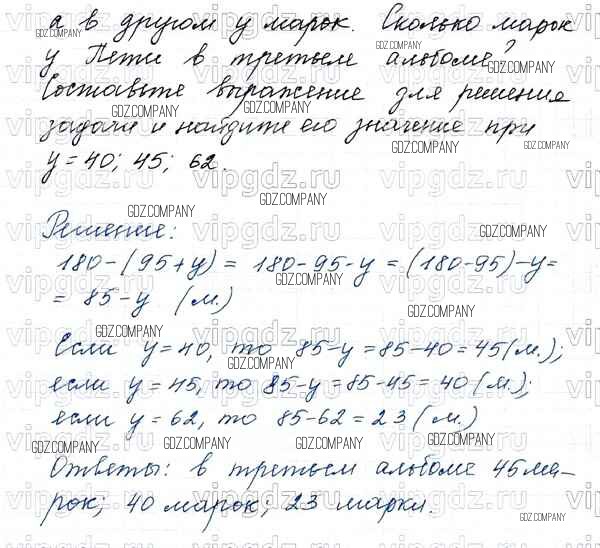 а в другом у марок. Сколько марок
у Пети в третьем альбоме?
Составьте выражение для решения
задачи и найдите его значение при
y = 40; 45; 62.
Решение:
180-(95+y) = 180-95-y = (180-95)-y=
= 85-y (м.)
Если y=40, то 85-y=85-40=45(м.);
если y=45, то 85-y=85-45=40(м.);
если y=62, то 85-62=23(м.)
Ответы: в третьем альбоме 45 ма-
рок; 40 марок; 23 марки.
GDZ.COMPANY
vipgdz.ru